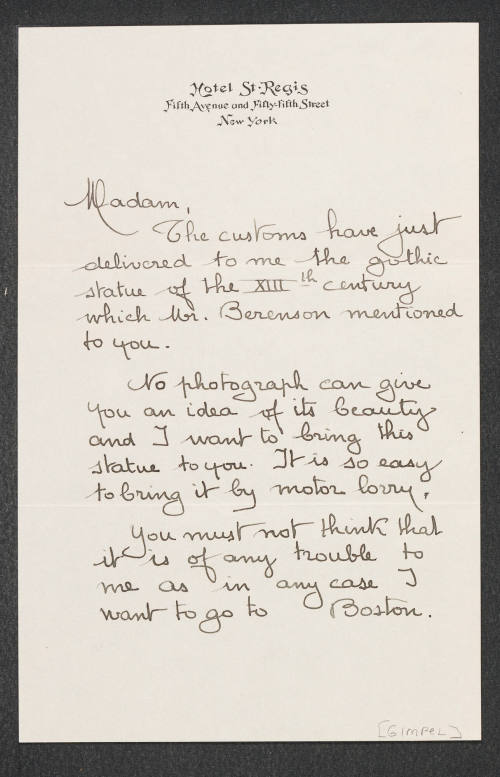 Hotel St. Regis
Fifth Avenue and Fifty-fifth Street
New York
Madam,
The customs have just
delivered to me the gothic
statue of the XIII th century
which Mr. Berenson mentioned
to you.
No photograph can give
you an idea of its beauty
and I want to bring this
statue to you. It is so easy
to bring it by motor lorry.
You must not think that
it is of any trouble to
me as in any case I
want to go to Boston.
[GIMPEL]